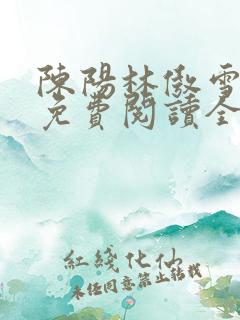 陳陽林傲雪
免費閱讀全
紅綫化仙
未經同意禁止轉載